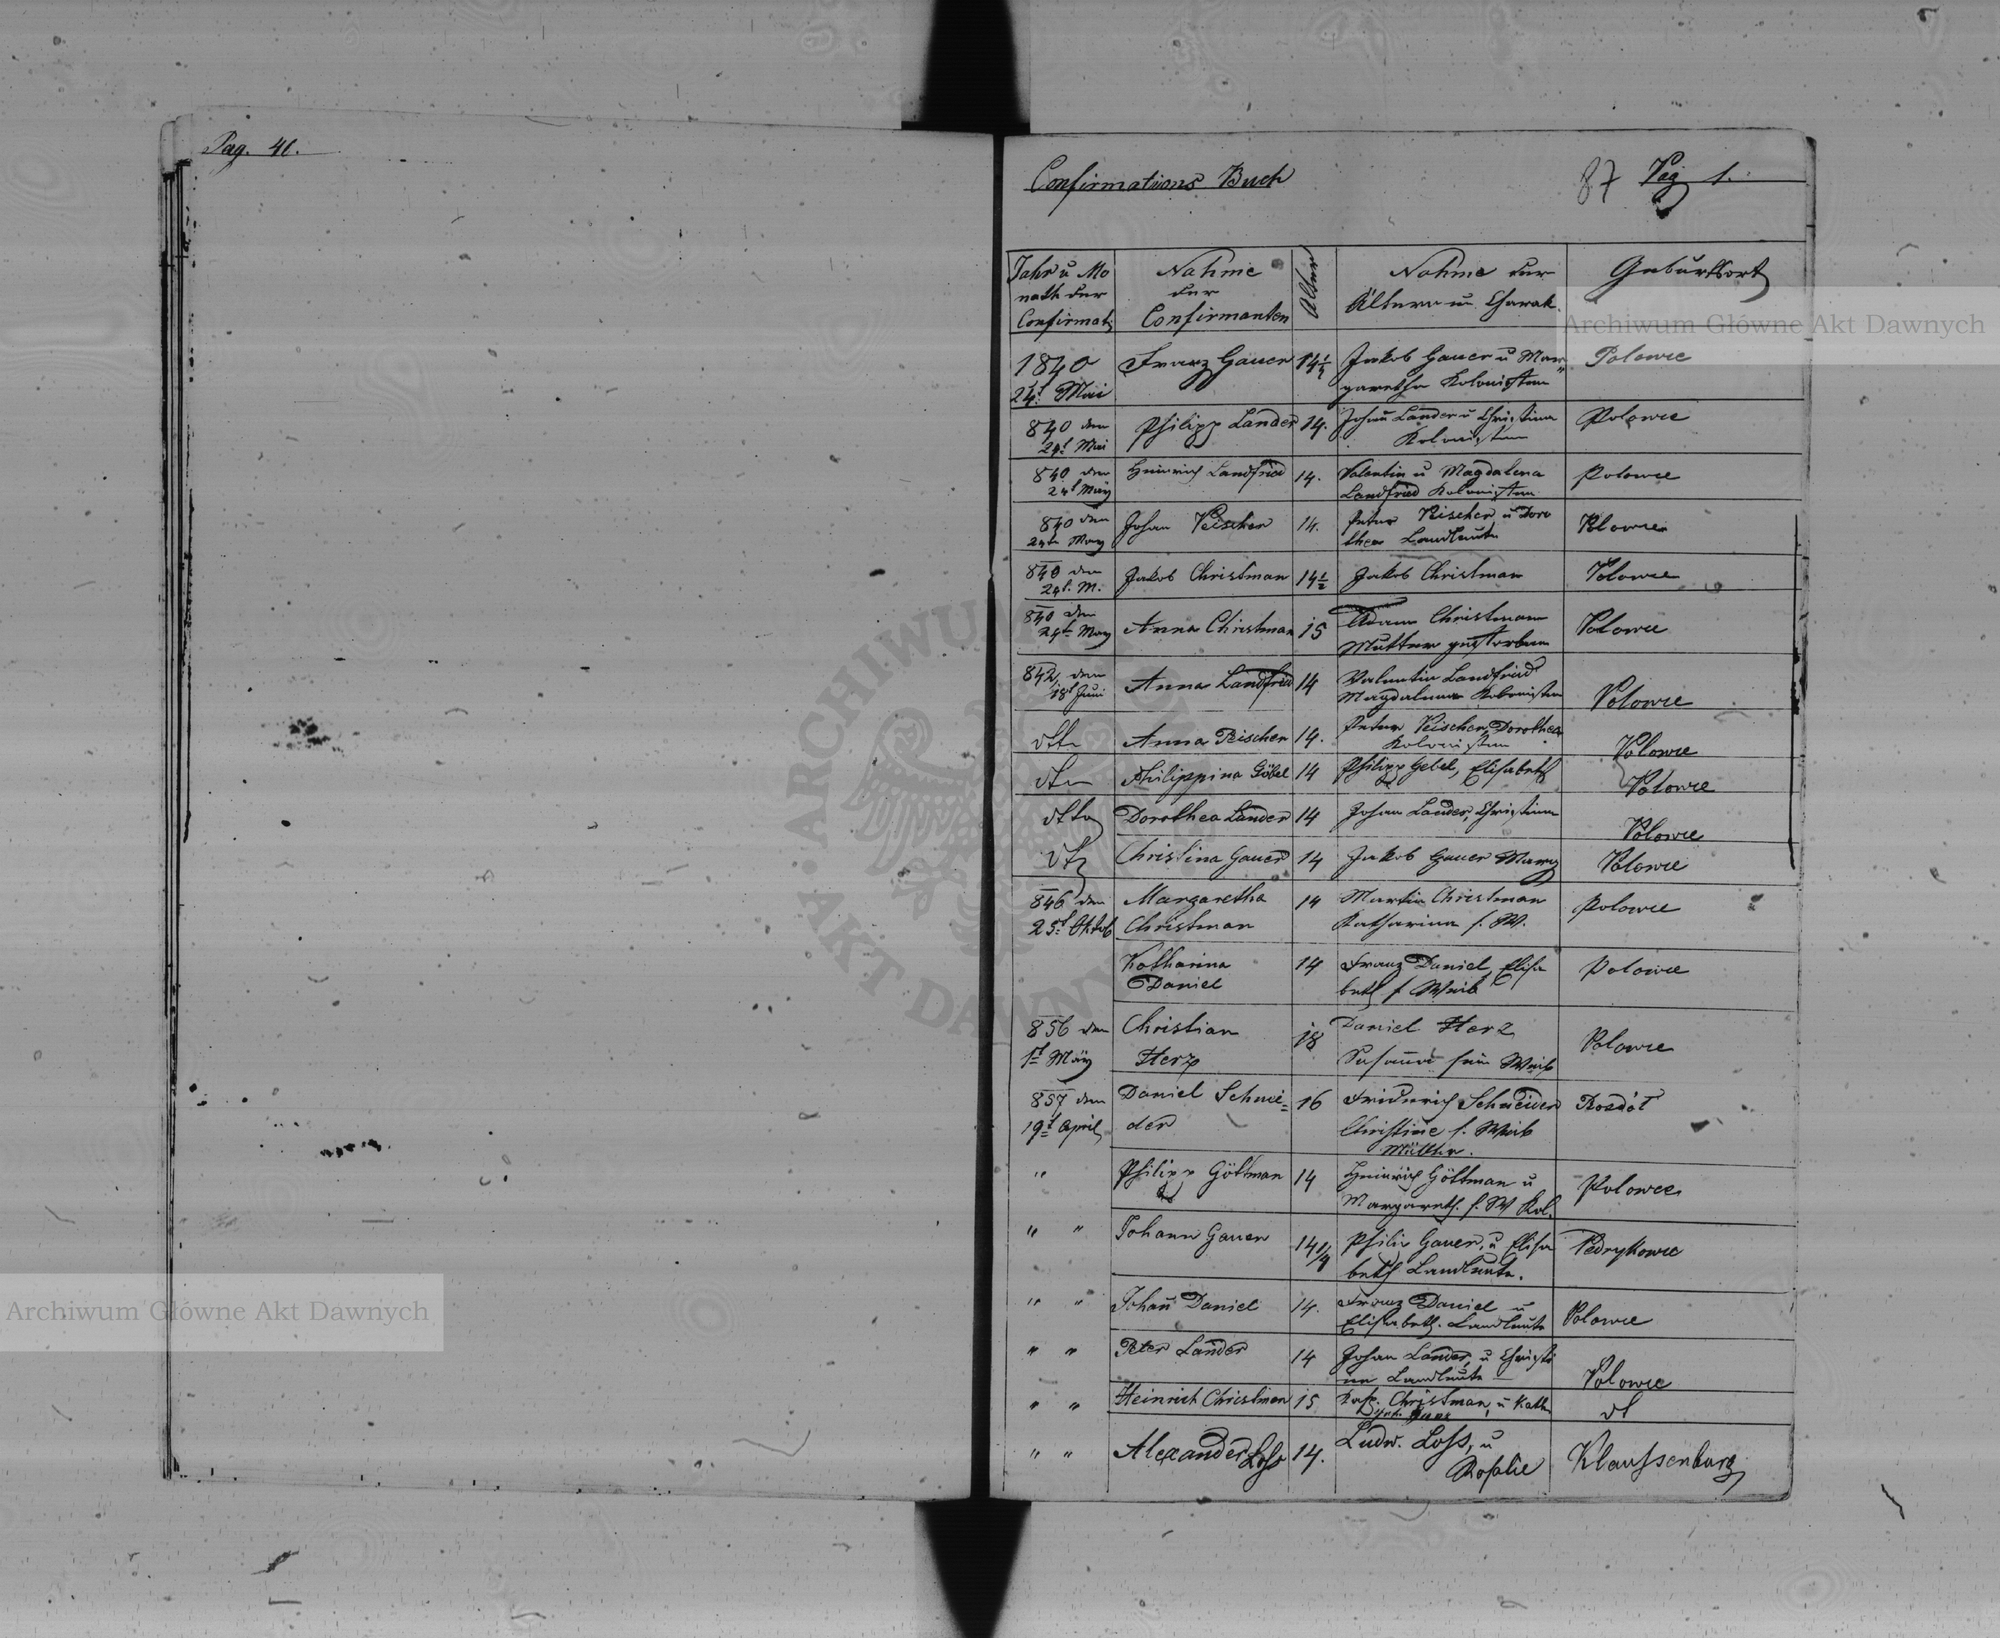 Pag. 41.
Confirmations Buch
87 Pag 1.
Jahr u Mo
nath der
Confirmati
Nahme
der
Confirmanten
Alter
Nahme der
Ältern u Charak.
Geburtsort
1840
24t Mai
Franz Gauer
14½
Jakob Gauer u Mar
garetha Kolonisten
Polowce
840 den
24t Mai
Philipp Lander
14.
Johañ Lander u Christina
Kolonisten
Polowce
840 den
24t May
Heinrich Landfried
14.
Valentin u Magdalena
Landfried Kolonisten
Polowce
840 den
24t May
Johan Reischer
14.
Peter Reischer u Doro
thea Landleute
Polowce
840 den
24t. M.
Jakob Christman
14½
Jakob Christman
Polowce
840 den
24t May
Anna Christman
15
Adam Christmann
Mutter gestorben
Polowce
842 den
18t Juni
Anna Landfried
14
Valentin Landfried
Magdalena Kolonisten
Polowce
dtto
Anna Reischer
14.
Peter Reischer, Dorothea
Kolonisten
Polowce
dto
Philippina Göbel
14
Philipp Gebel, Elisabeth
Polowce
dtto
Dorothea Lander
14
Johan Lander, Christina
Polowce
dto
Christina Gauer
14
Jakob Gauer Marg
Polowce
846 den
25t Oktob
Margaretha
Christman
14
Martin Christman
Katharina s. W.
Polowce
Katharina
Daniel
14
Franz Daniel, Elisa
beth s Weib
Polowce
856 den
1t May
Christian
Herz
18
Daniel Herz
Susaña sein Weib
Polowce
857 den
19t April
Daniel Schnei=
der
16
Friderich Schneider
Christine s. Weib
Rozdół
"
Philipp Göttman
14
Heinrich Göttman u
Margareth. s. W Kol.
Polowce
" "
Johann Gauer
14 1/4
Philip Gauer, u Elisa
beth Landleute.
Pedrykowce
" "
Johañ Daniel
14.
Franz Daniel u
Elisabeth. Landleute
Polowce
" "
Peter Lander
14
Johan Lander, u Christi
na Landleute
Polowce
" "
Heinrich Christman
15
Christman, u Kath
dt
" "
Alexander Loss
14.
Ludw. Loss, u
Rosalie
Klaussenburg
Archiwum Główne Akt Dawnych
Archiwum Główne Akt Dawnych
ARCHIWUM GŁÓWNE AKT DAWNYCH